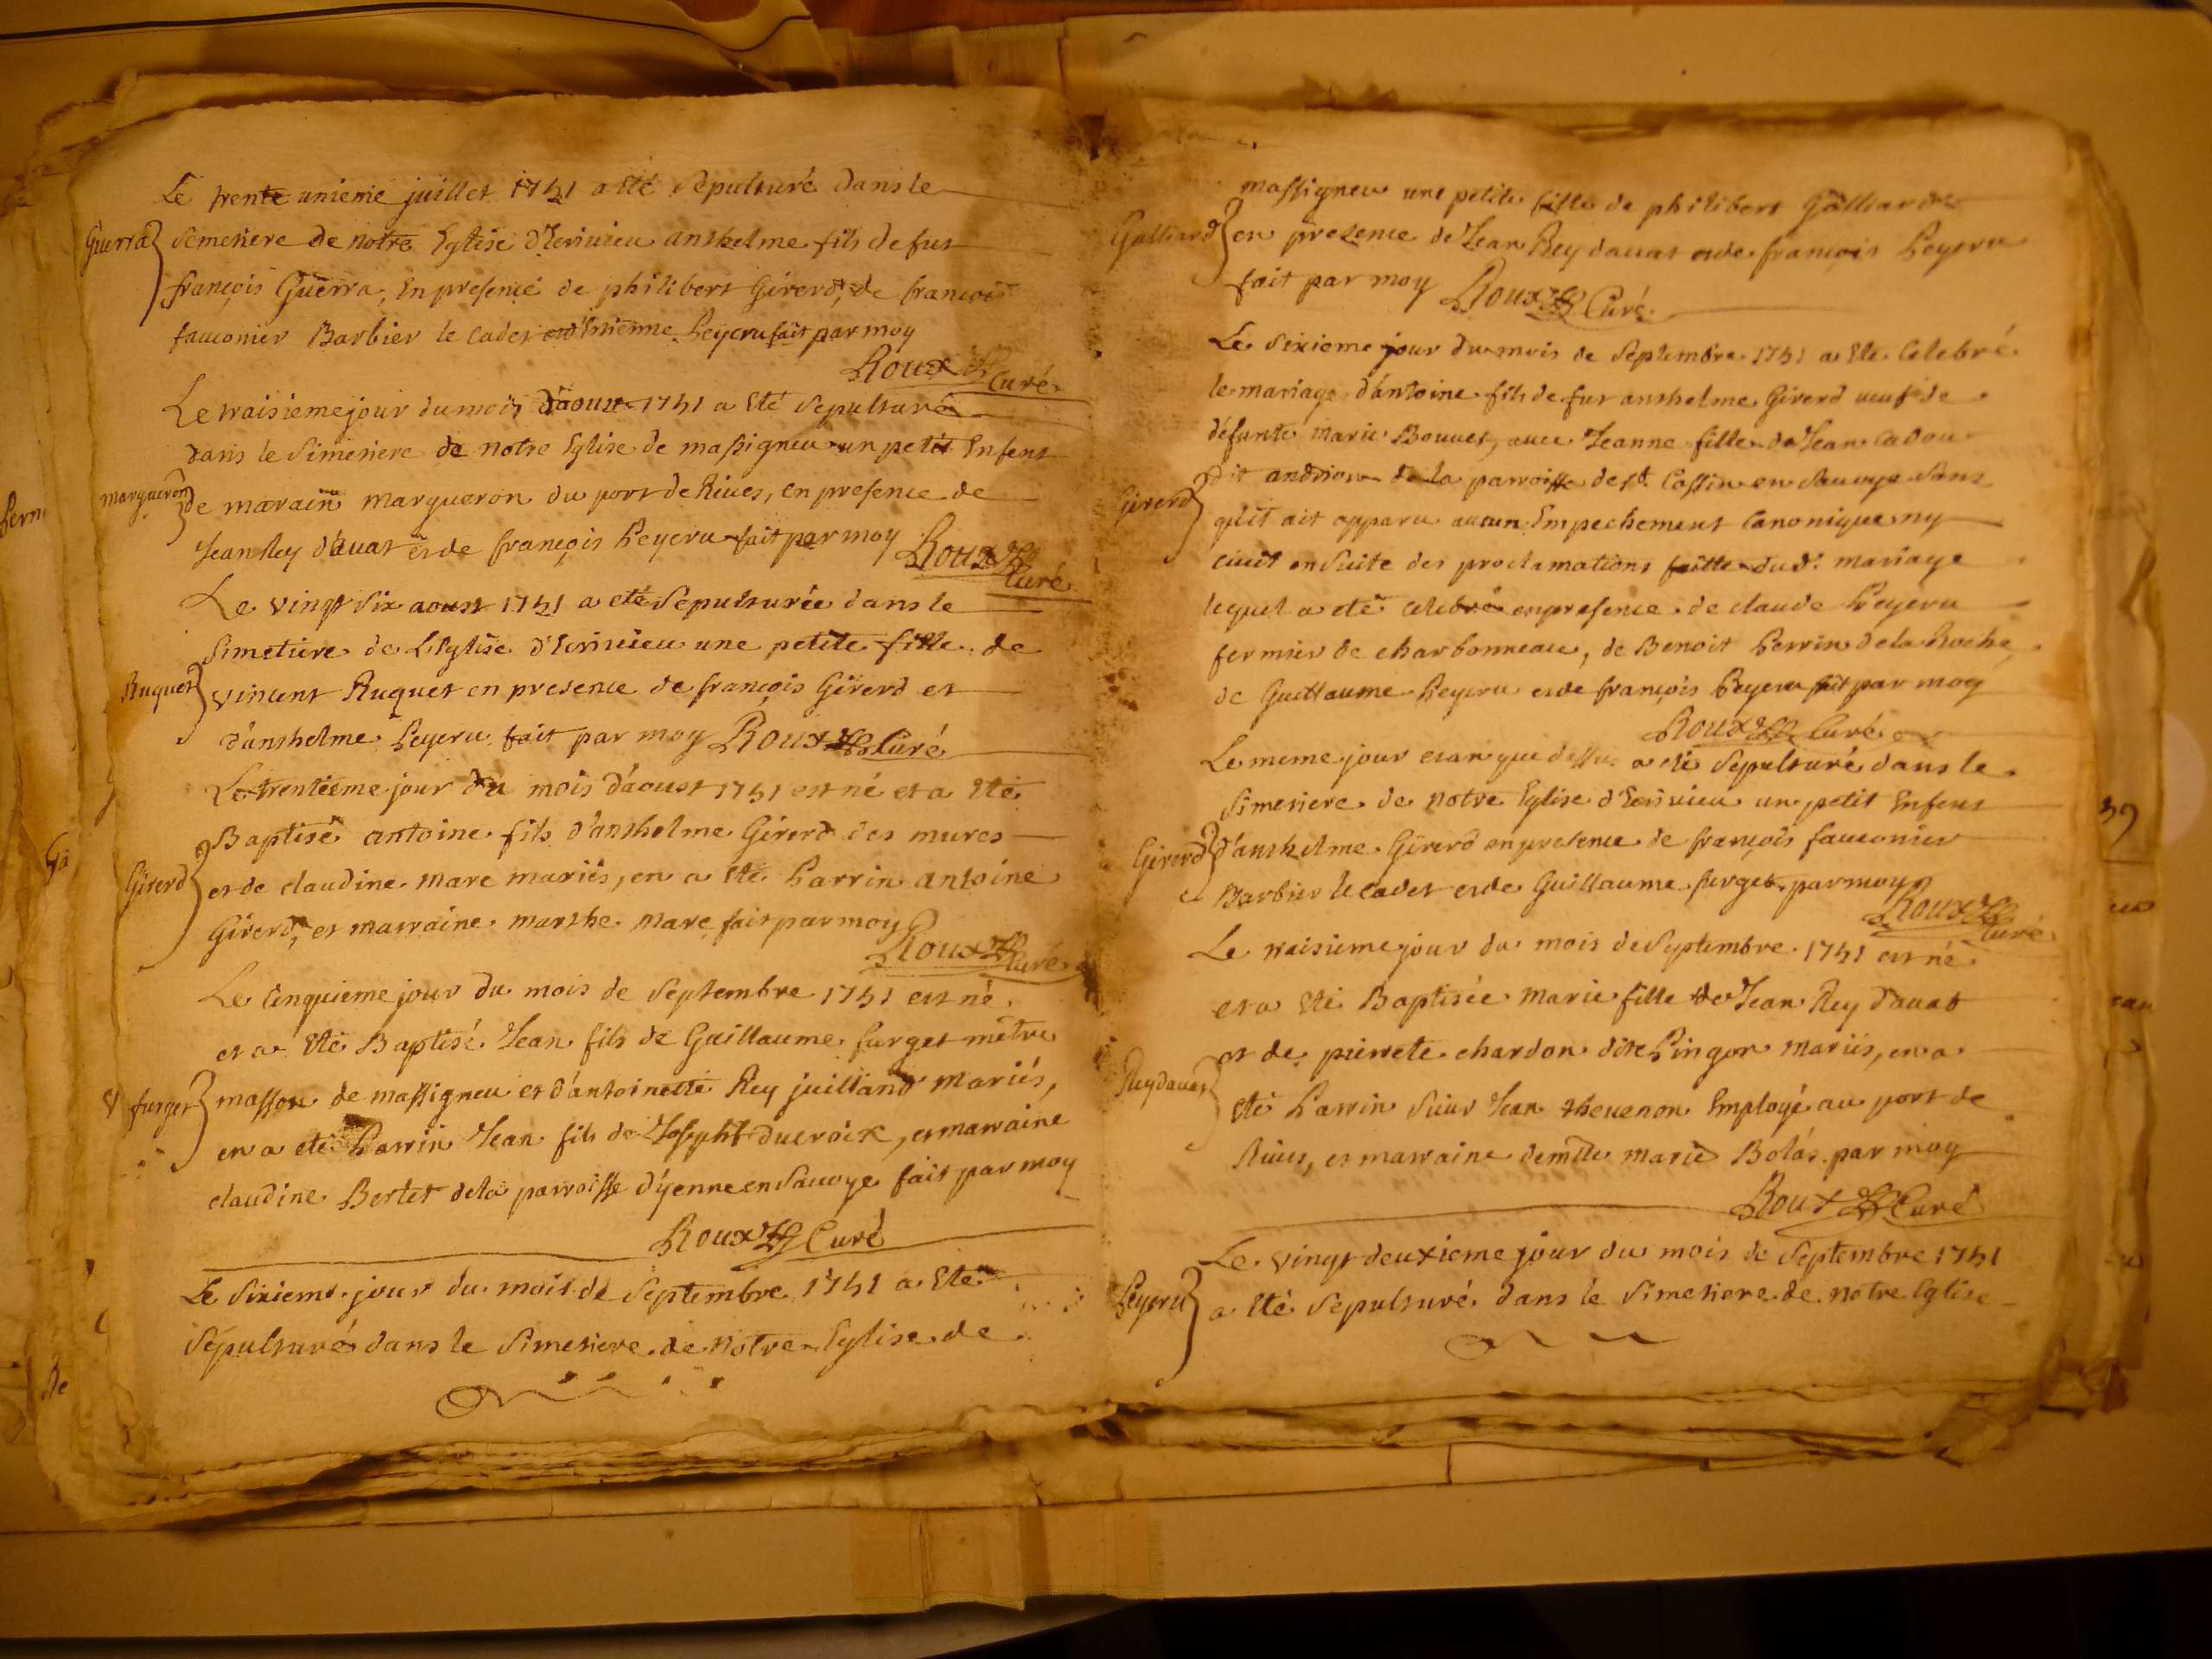 Le trente unieme juillet 1751 a eté sepulturé dans le
Guerra
semetiere de notre Eglise d'Ecrivieu anthelme fils de fut
françois Guerra, En presence de philibert Girerd, de francois
fauconier Barbier le cadet et d'Etienne Peyeru fait par moy
Roux Curé
Le traisieme jour du mois d'aoust 1751 a eté sepulturé
dans le simetiere de notre Eglise de massigneu un petit Enfent
margueron
de marain margueron du port de Rives, en presence de
Jean Rey davat et de françois Peyeru fait par moy
Roux Curé
Le vingt six aoust 1751 a eté sepulturée dans le
simetiere de L'Eglise d'Ecrivieu une petite fille de
Ruquet
vincent Ruquet en presence de françois Girerd et
d'anthelme Peyeru fait par moy Roux Curé
Le trentieme jour du mois d'aoust 1751 est né et a eté
Baptisé antoine fils d'anthelme Girerd des mures
Girerd
et de claudine mare mariés, en a eté Parrin antoine
Girerd, et marraine marthe mare fait par moy
Roux Curé
Le cinquieme jour du mois de septembre 1751 est né
et a eté Baptisé Jean fils de Guillaume furget métre
furget
masson de massigneu et d'antoinette Rey juilland mariés,
en a eté Parrin Jean fils de Joseph ducroix, et marraine
claudine Bertet de la parroisse d'yenne en Savoye fait par moy
Roux Curé
Le sixieme jour du mois de septembre 1751 a eté
sepulturé dans le simetiere de notre Eglise de
massigneu une petite fille de philibert Galliard
Galliard
en presence de Jean Rey davat et de françois Peyeru
fait par moy Roux Curé
Le sixieme jour du mois de septembre 1751 a eté celebré
le mariage d'antoine fils de fut anthelme Girerd veuf de
défunte marie Bouvet, avec Jeanne fille de Jean Cadou
Girerd
dit andrion de la parroisse de st. Cassin en Savoye sans
qu'il ait apparu aucun Empechement canonique ny
civil en suite des proclamations faitte dud. mariage
lequel a eté celebré en presence de claude Peyeru
fermier de charbonneau, de Benoit Perrin de la Roche,
de Guillaume Peyeru et de françois Peyeru fait par moy
Roux Curé
Le meme jour et an que dessu a eté sepulturé dans le
simetiere de notre Eglise d'Ecrivieu un petit Enfent
Girerd
d'anthelme Girerd en presence de françois fauconier
Barbier le cadet et de Guillaume furget par moy
Roux Curé
Le traisieme jour du mois de septembre 1751 est né
et a eté Baptisée marie fille de Jean Rey davat
et de pierrete chardon dite Pingon mariés, en a
Rey davat
eté Parrin sieur Jean thevenon Employé au port de
Rives, et marraine demlle marie Bolás par moy
Roux Curé
Le vingt deuxieme jour du mois de septembre 1751
Peyeru
a eté sepulturé dans le simetiere de notre Eglise
39